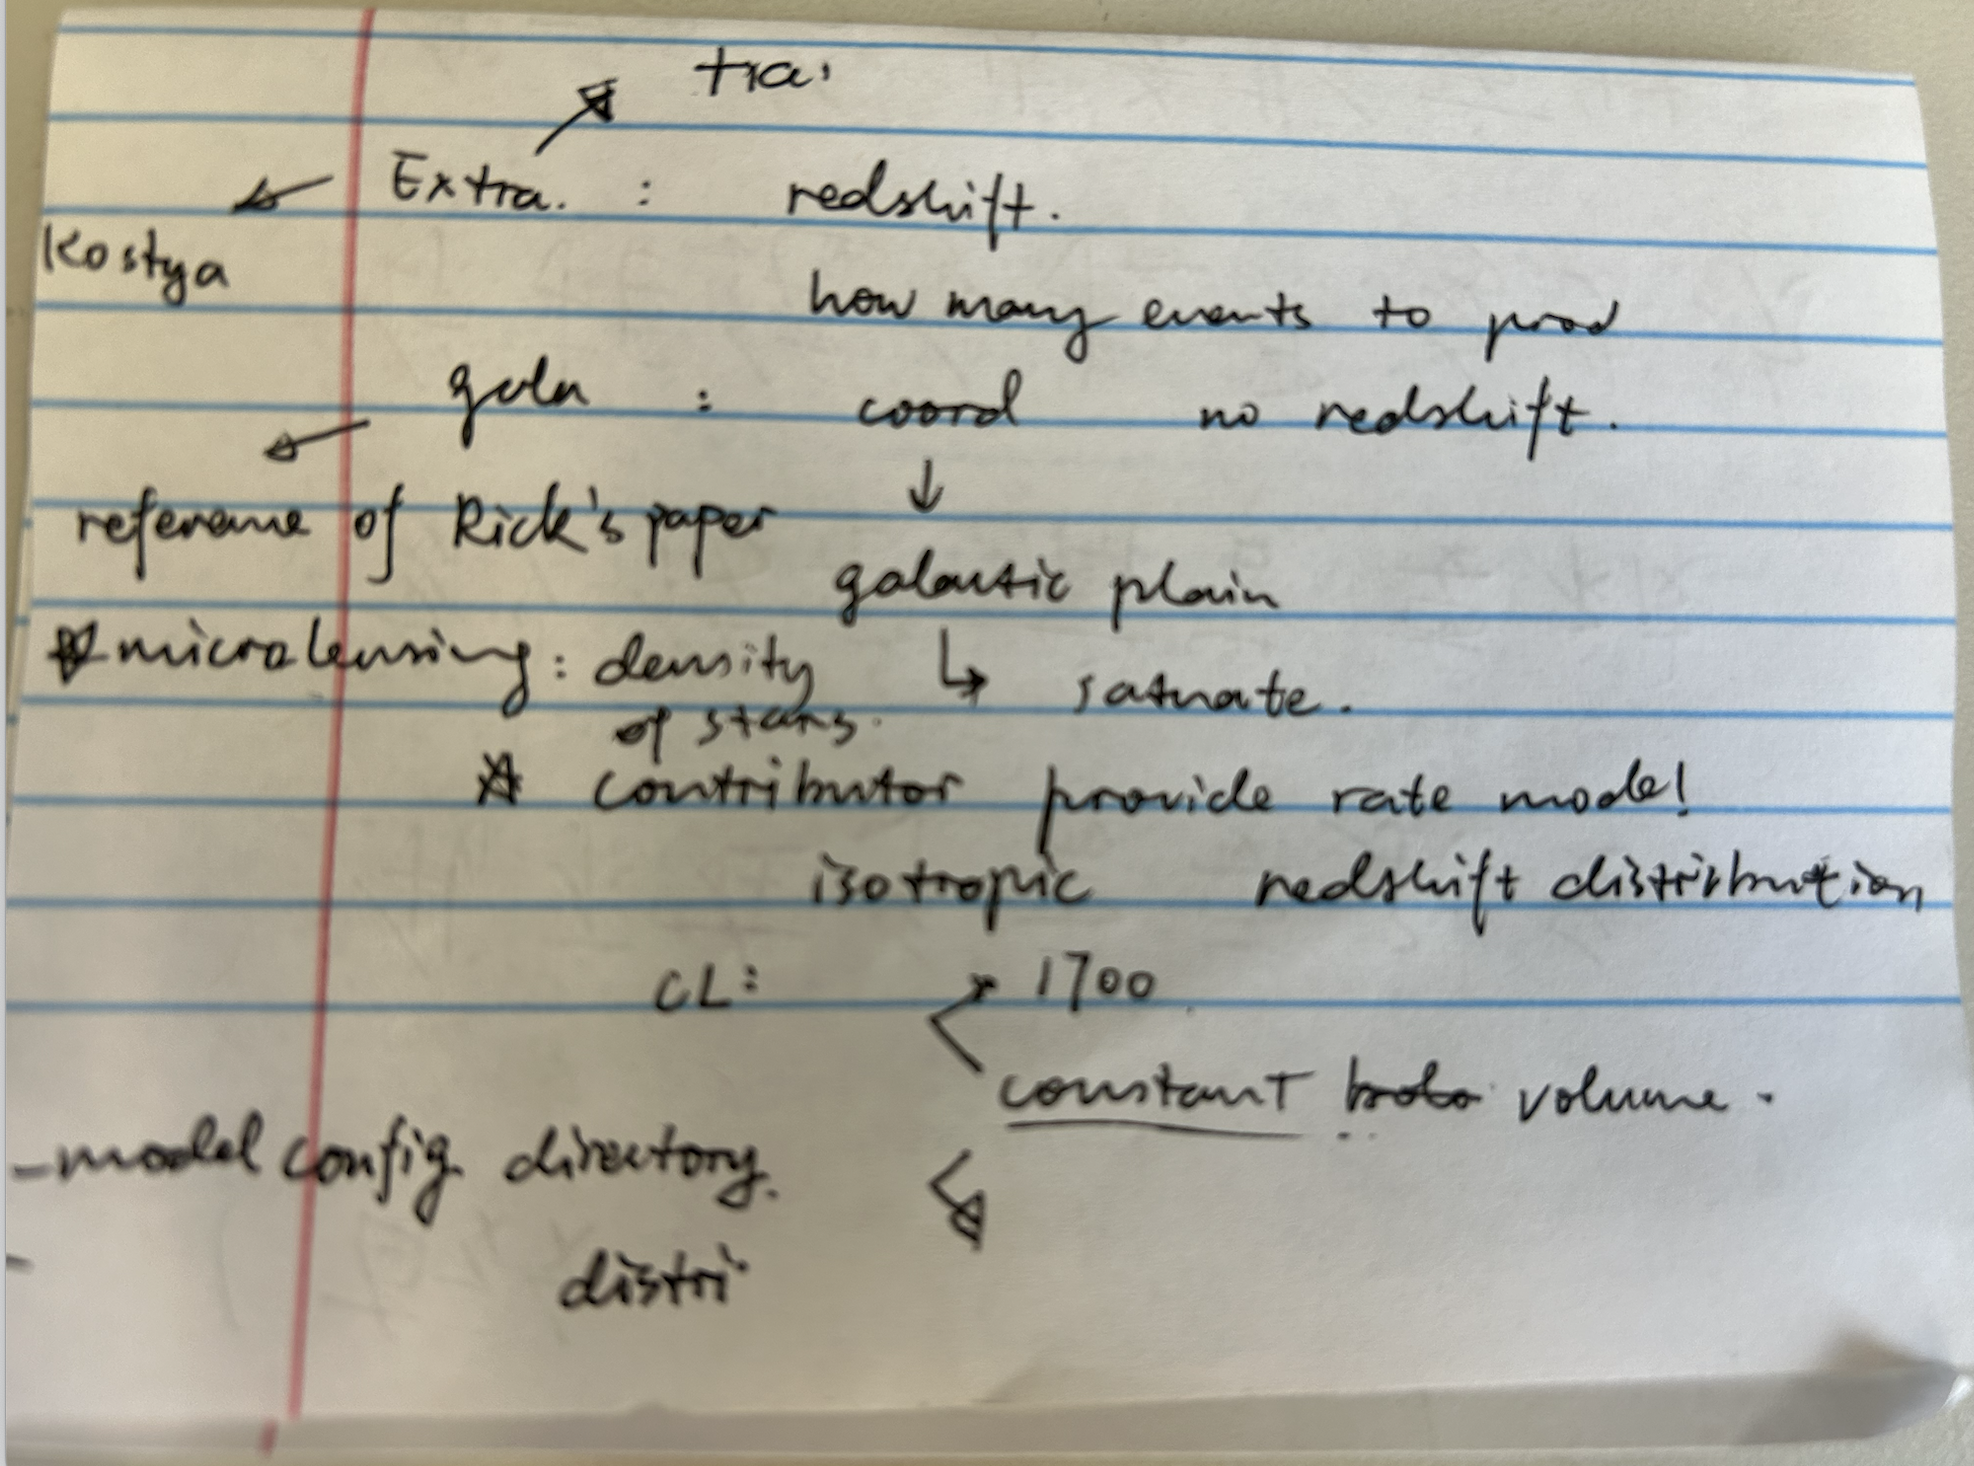 tra.
Extra. : redshift.
Kostya
how many events to prod
gala : coord no redshift.
reference of Rick's paper
galactic plain
microlensing : density of stars.
saturate.
contributor provide rate model
isotropic redshift distribution
CL : 1700
constant volume.
- model config. directory.
distri